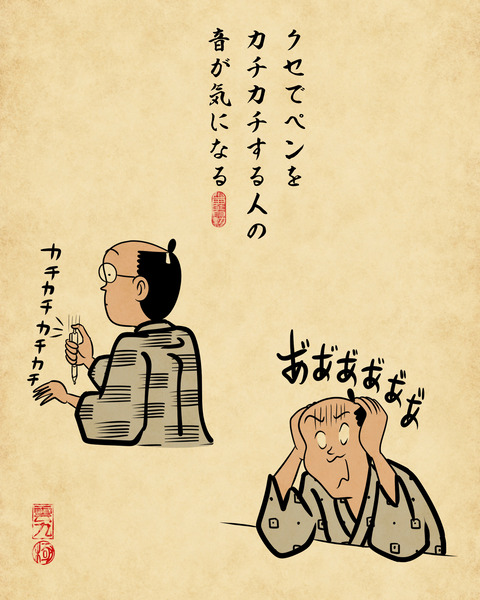 クセでペンを
カチカチする人の
音が気になる
カチカチカチカチ
あ゛あ゛あ゛あ゛あ゛あ゛